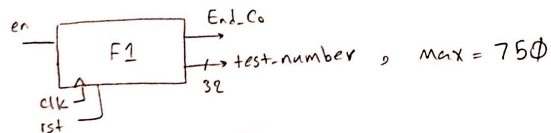 en
F1
End_Co
test_number , max = 750
32
clk
rst